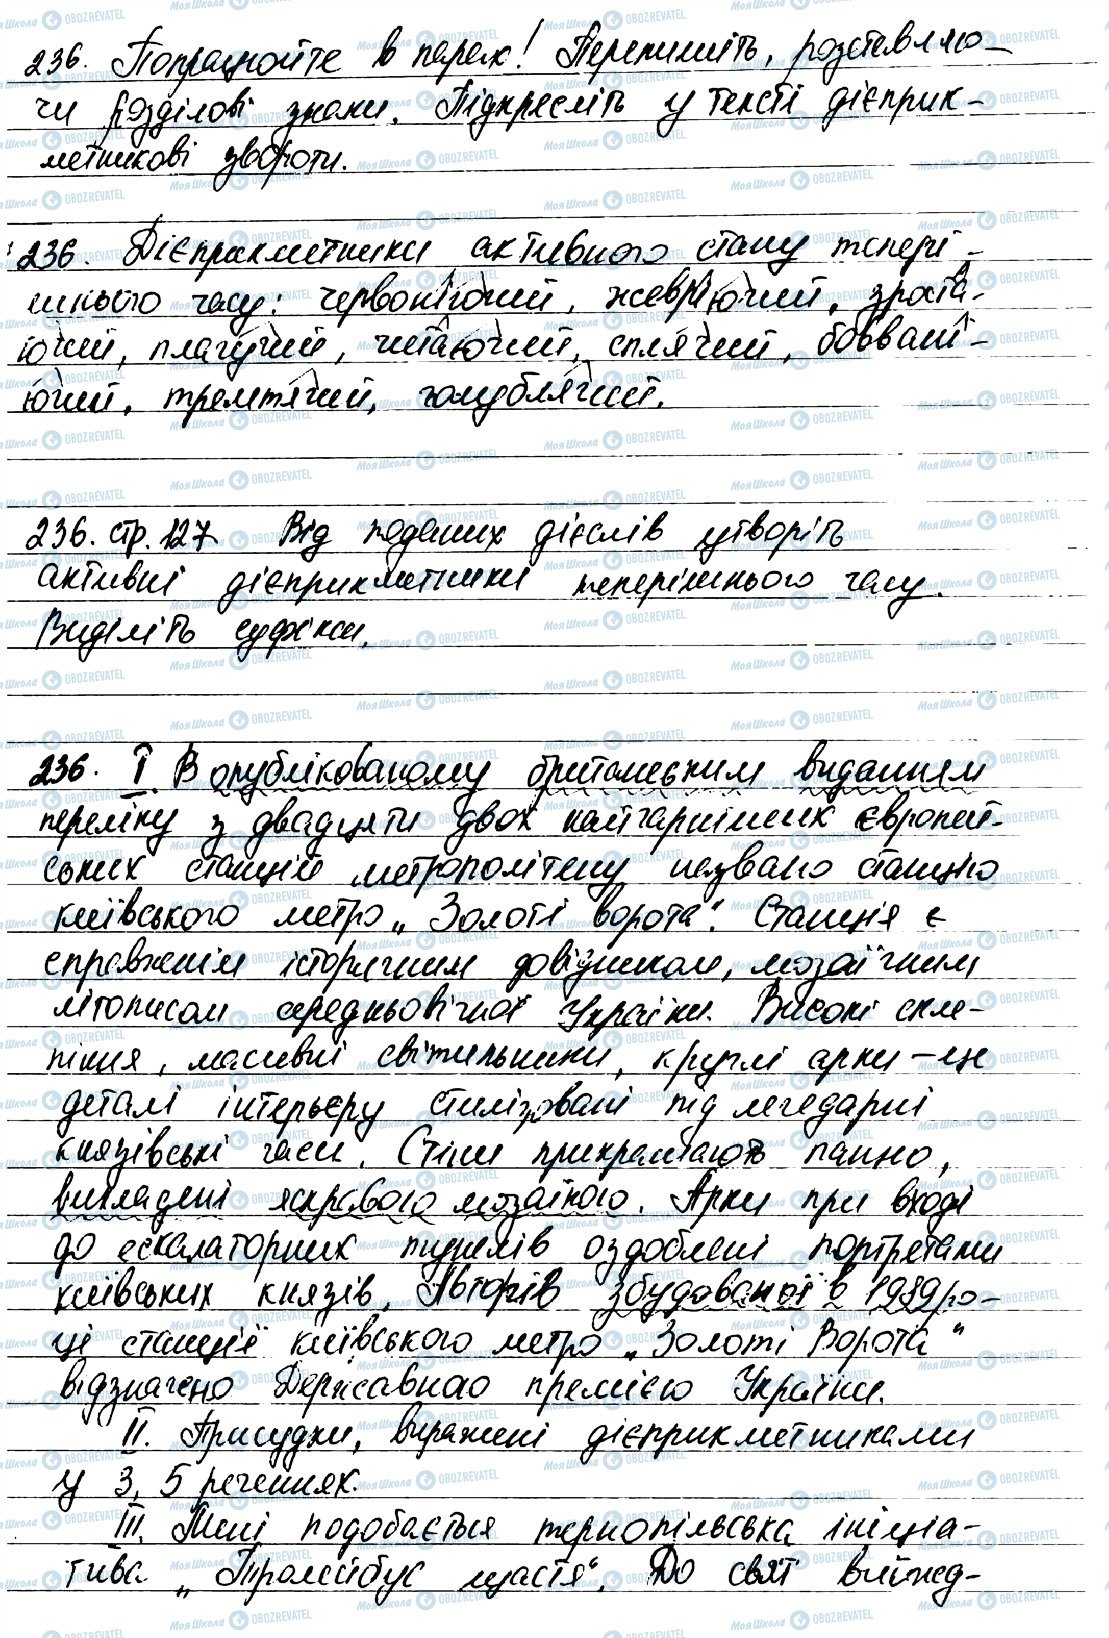 236. Попрацюйте в парах! Перепишіть, розставляю-
чи розділові знаки. Підкресліть у тексті дієприк-
метникові звороти.
236. Дієприкметники активного стану тепері-
шнього часу: червоніючий, жевріючий, зроста-
ючий, плачучий, читаючий, сплячий, бовван-
ючий, тремтячий, голублячий.
236. стр. 127 Від поданих дієслів утворіть
активні дієприкметники теперішнього часу.
Виділіть суфікси.
236. І. В опублікованому британським виданням
переліку з двадцяти двох найгарніших європей-
ських станцій метрополітену названо станцію
київського метро „Золоті ворота". Станція є
справжнім історичним довідником, мозаїчним
літописом середньовічної України. Високі скле-
піння, масивні світильники, круглі арки – це
деталі інтерьєру стилізовані під легедарні
князівські часи. Стіни прикрашають панно,
викладені яскравою мозаїкою. Арки при вході
до ескалаторних тунелів оздоблені портретами
київських князів. Авторів збудованої в 1989 ро-
ці станції київського метро „Золоті Ворота"
відзначено Державною премією України.
ІІ. Присудки, виражені дієприкметниками
у 3, 5 реченнях.
ІІІ. Мені подобається тернопільська ініціа-
тива „Тролейбус щастя". До свят виїжд-